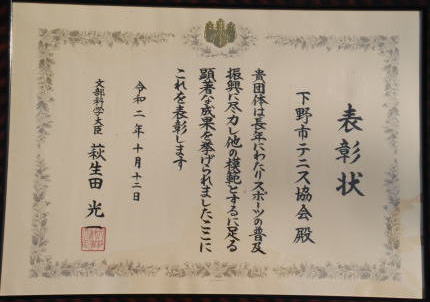 表彰状
下野市テニス協会 殿
貴団体は長年にわたりスポーツの普及
振興に尽力し他の模範とするに足る
顕著な成果を挙げられましたここに
これを表彰します
令和二年十月十二日
文部科学大臣 萩生田 光